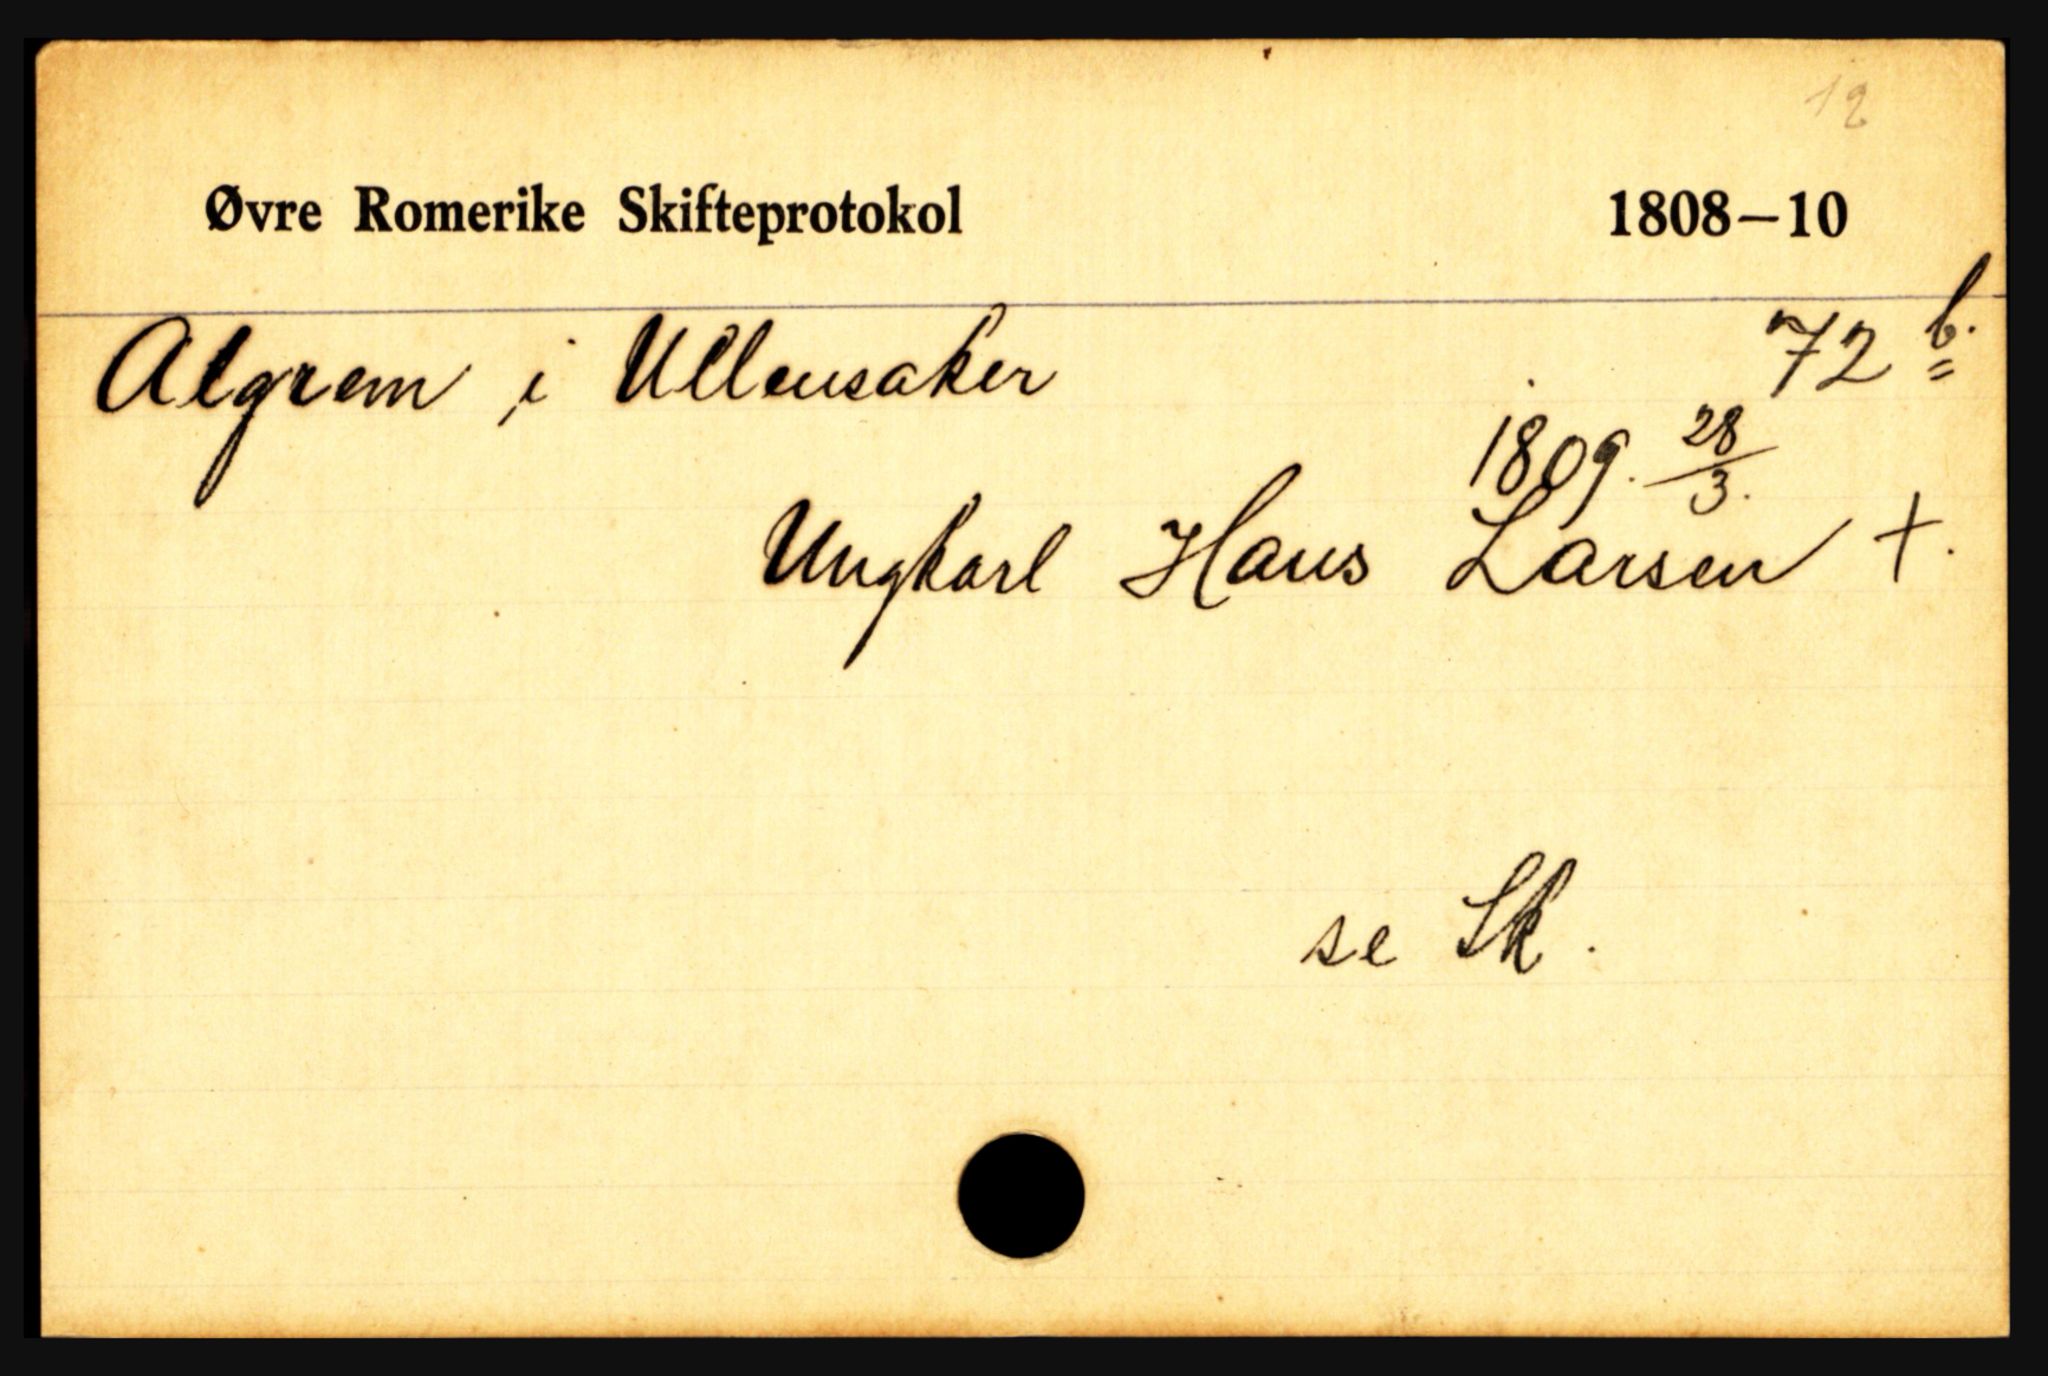 12
Øvre Romerike Skifteprotokol 1808–10
Algrem i Ullensaker 72 b.
1809. 28/3.
Ungkarl Hans Larsen +.
se Sk.